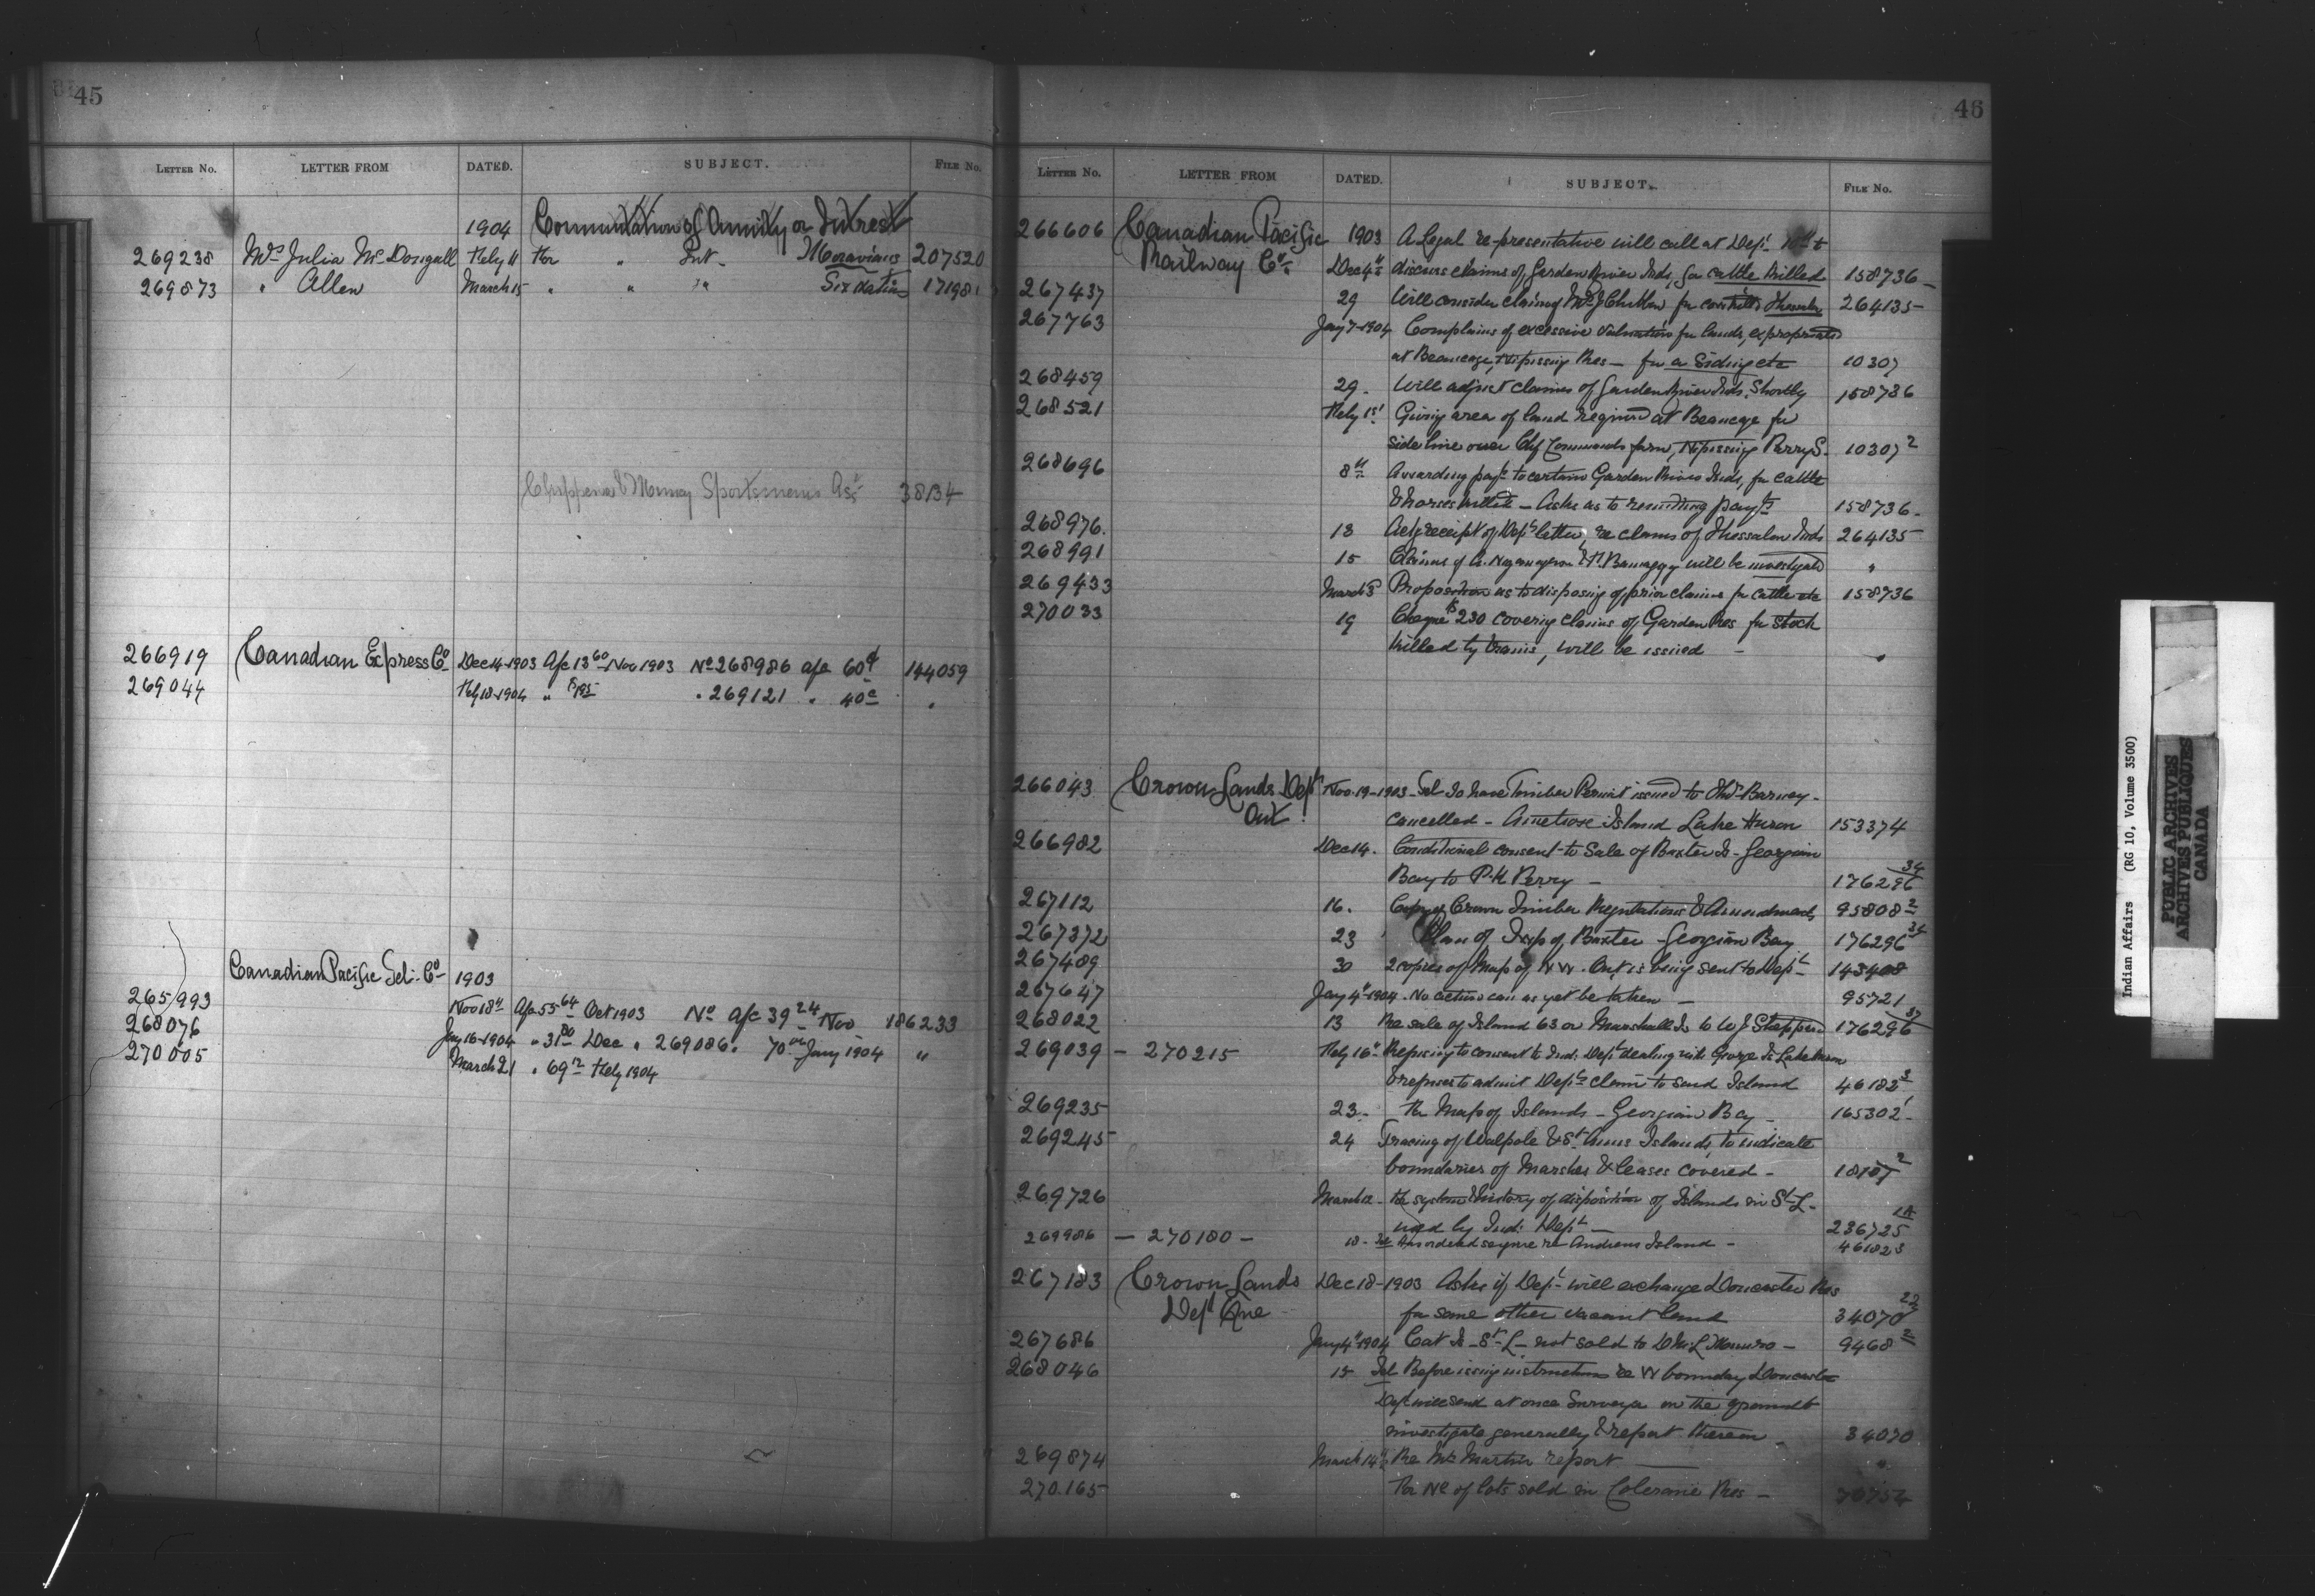 45
LETTER No. LETTER FROM DATED. SUBJECT. FILE No.
1904 Commutation of Annuity or Interest
269238 Mrs Julia McDougall Feby 11 For " Int- Moravians 207520
269873 " Allen March 15 " " " Six Nations 17198
Chippewa & Munsey Sportsmens Assn 38134
266919 Canadian Express Co Dec 14-1903 A/c 13 60 Nov 1903 No 268986 a/c 60c 144059
269044 Feby 18-1904 " " 269121 " 40c "
Canadian Pacific Tel. Co 1903
265993 Nov 18th A/c 55 64 Oct 1903 No A/c 39 24 Nov 186233
268076 Jany 16-1904 " 31 80 Dec " 269086 " 70 Jany 1904 "
270005 March 21 " 69 12 Feby 1904
46
LETTER No. LETTER FROM DATED. SUBJECT. FILE No.
266606 Canadian Pacific 1903 A Legal representative will call at Dept 10th to
Railway Co. Dec 4th discuss claims of Garden River Inds, for cattle killed 158736
267437 29 Will consider claim of for cow killed Thessalon 264135
267763 Jany 7-1904 Complains of excessive valuation for lands, expropriated
at Beaucage, Nipissing Res - for a Siding etc 10307
268459 29. Will adjust claims of Garden River Inds. Shortly 158736
268521 Feby 1st Giving area of land required at Beaucage for
side line over Chf Commanda farm, Nipissing Parry S. 10307 2
268696 8th Awarding payt to certain Garden River Inds, for cattle
& horses killed - Asks as to remitting payt 158736
268976. 13 Ack receipt of Depts letter, re claims of Thessalon Inds 264135
268991 15 Claims of will be investigated "
269433 March 5 Proposition as to disposing of prior claims for cattle etc 158736
270033 19 Cheque $230 covering claims of Garden Res for stock
killed by trains, will be issued - "
266043 Crown Lands Dept Nov. 19-1903 - Tel To have Timber Permit issued to Barney -
Ont. cancelled - Island Lake Huron 153374
266982 Dec 14. Conditional consent to Sale of Baxter Is - Georgian
Bay to P. H. Perry - 176296 34
267112 16. Copy of Crown Timber Regulations & Amendments 95808 2
267372 23 Plan of Twp of Baxter - Georgian Bay 176296 34
267489 30 2 copies of Map of N W. Ont is being sent to Dept 143408
267647 Jany 4th 1904. No action can as yet be taken - 95721
268022 13 Re sale of Island 63 or Marshall Is to W J Sheppard 176296 37
269039 - 270215 Feby 16th Refusing to consent to Ind. Dept dealing with George Is Lake Huron
& refuses to admit Depts claim to said Island 46182 3
269235 23 - Re Map of Islands - Georgian Bay 165302 1
269245 24 Tracing of Walpole & St Anns Islands, to indicate
boundaries of Marshes & leases covered - 2
269726 March 12 - Re system & history of disposition of Islands in St L -
used by Ind. Dept - 236725 1A
269986 - 270180 - 18 - Has ordered enquire re Andrews Island - 46182 3
267183 Crown Lands Dec 18-1903 Asks if Dept will exchange Doncaster Res
Dept Que for some other vacant land 34070 22
267686 Jany 4th 1904 Cat Is - St L - not sold to D McL Munro - 9468 2
268046 15 Tel Before issuing instructions re W boundary Doncaster
Dept will send at once Surveyor on the ground to
investigate generally & report thereon 34070
269874 March 14th Re Mr Martin report "
270165 Re No of lots sold in Coleraine Res -
Indian Affairs (RG 10, Volume 3500)
PUBLIC ARCHIVES
ARCHIVES PUBLIQUES
CANADA